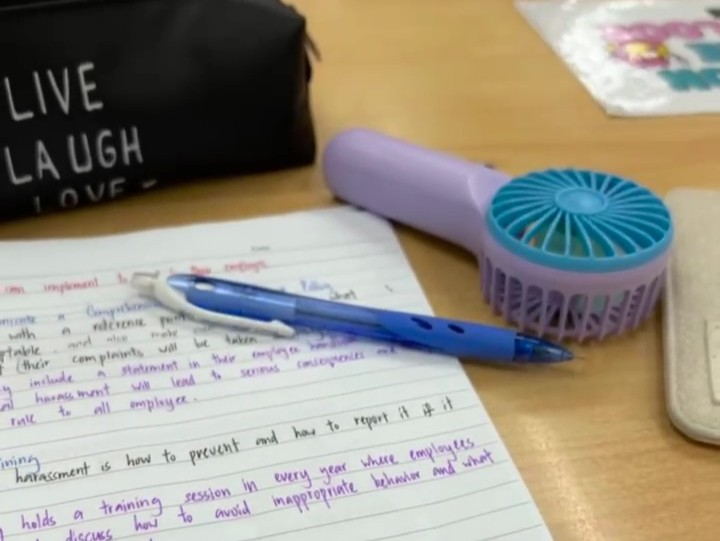 LIVE
LAUGH
LOVE
can implement to their employee
a Comprehensive Policy
with a reference point what
and also make
(their complaints will be taken
include a statement in their employee
harassment will lead to serious consequences and
rule to all employee.
harassment is how to prevent and how to report it if it
holds a training session in every year where employees
discuss how to avoid inappropriate behavior and what